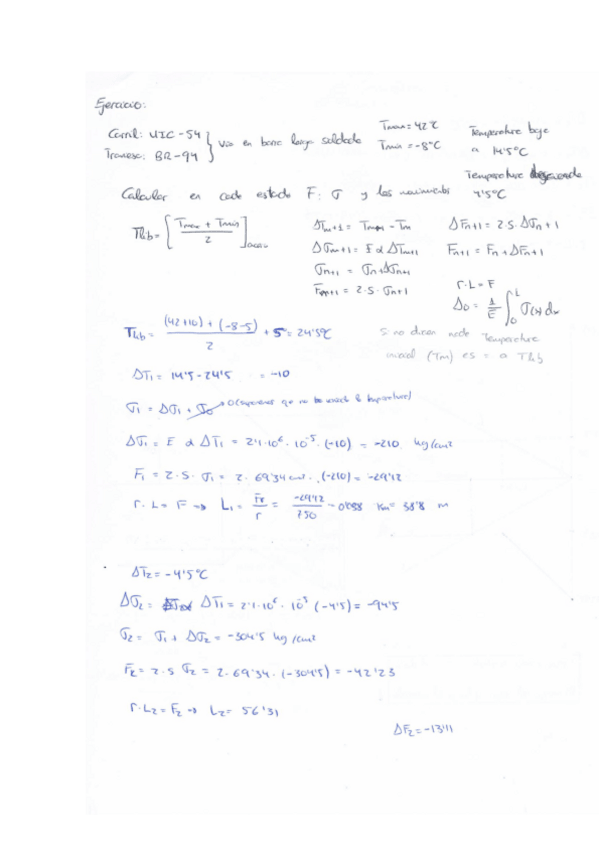 Ejercicio:
Carril: UIC-54
Traviesa: BR-94
Vía en barra larga soldada
Tmax = 42°C
Tmin = -8°C
Temperatura baja a 14'5°C
Temperatura desciende 4'5°C
Calcular en cada estado F: σ y los movimientos
Tlib = [Tmax + Tmin / 2]
ΔTn+1 = Tn+1 - Tn
ΔFn+1 = 2·S·Δσn+1
Δσn+1 = E α ΔTn+1
Fn+1 = Fn + ΔFn+1
σn+1 = σn + Δσn+1
Fn+1 = 2·S·σn+1
r·L = F
Δo = 1/E ∫₀ᴸ σ(x) dx
Tlib = (42+10) + (-8-5) / 2 + 5 = 24'5°C
Si no dicen nada Temperatura
inicial (Tn) es = a Tlib
ΔT1 = 14'5 - 24'5 = -10
σ1 = Δσ1 + σ0 → 0 (suponemos que no ha variado la temperatura)
Δσ1 = E α ΔT1 = 2'1·10⁶·10⁻⁵·(-10) = -210 kg/cm²
F1 = 2·S·σ1 = 2·69'34 cm²·(-210) = -29'12
r·L = F → L1 = F1/r = -29'12/750 = 0'0388 Km = 38'8 m
ΔT2 = -4'5°C
Δσ2 = ΔT1 = 2'1·10⁶·10⁻⁵(-4'5) = -94'5
σ2 = σ1 + Δσ2 = -304'5 kg/cm²
F2 = 2·S σ2 = 2·69'34·(-304'5) = -42'23
r·L2 = F2 → L2 = 56'31
ΔF2 = -13'11